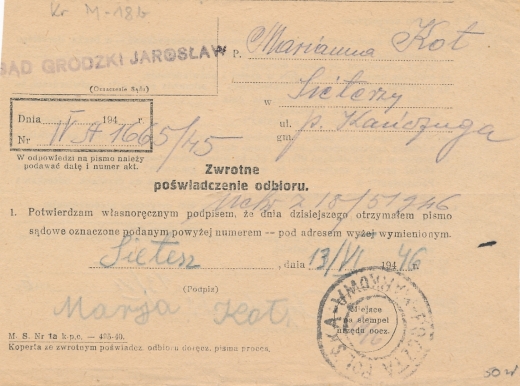 Kr M-18b
SĄD GRODZKI JAROSŁAW
(Oznaczenie Sądu)
P. Marianna Kot
w Sieterzy
ul.
gm. p. Kańczuga
Dnia 194 r.
Nr IV A 1665/45
W odpowiedzi na pismo należy
podawać datę i numer akt.
Zwrotne
poświadczenie odbioru.
z 18/5 1946
1. Potwierdzam własnoręcznym podpisem, że dnia dzisiejszego otrzymałem pismo
sądowe oznaczone podanym powyżej numerem — pod adresem wyżej wymienionym.
Sietesz, dnia 13/VI 1946
(Podpis)
Marja Kot
Miejsce
na stempel
urzędu pocz.
M. S. Nr 1a k.p.c. —
Koperta ze zwrotnym poświadcz. odbioru doręcz. pisma proces.
50 zł